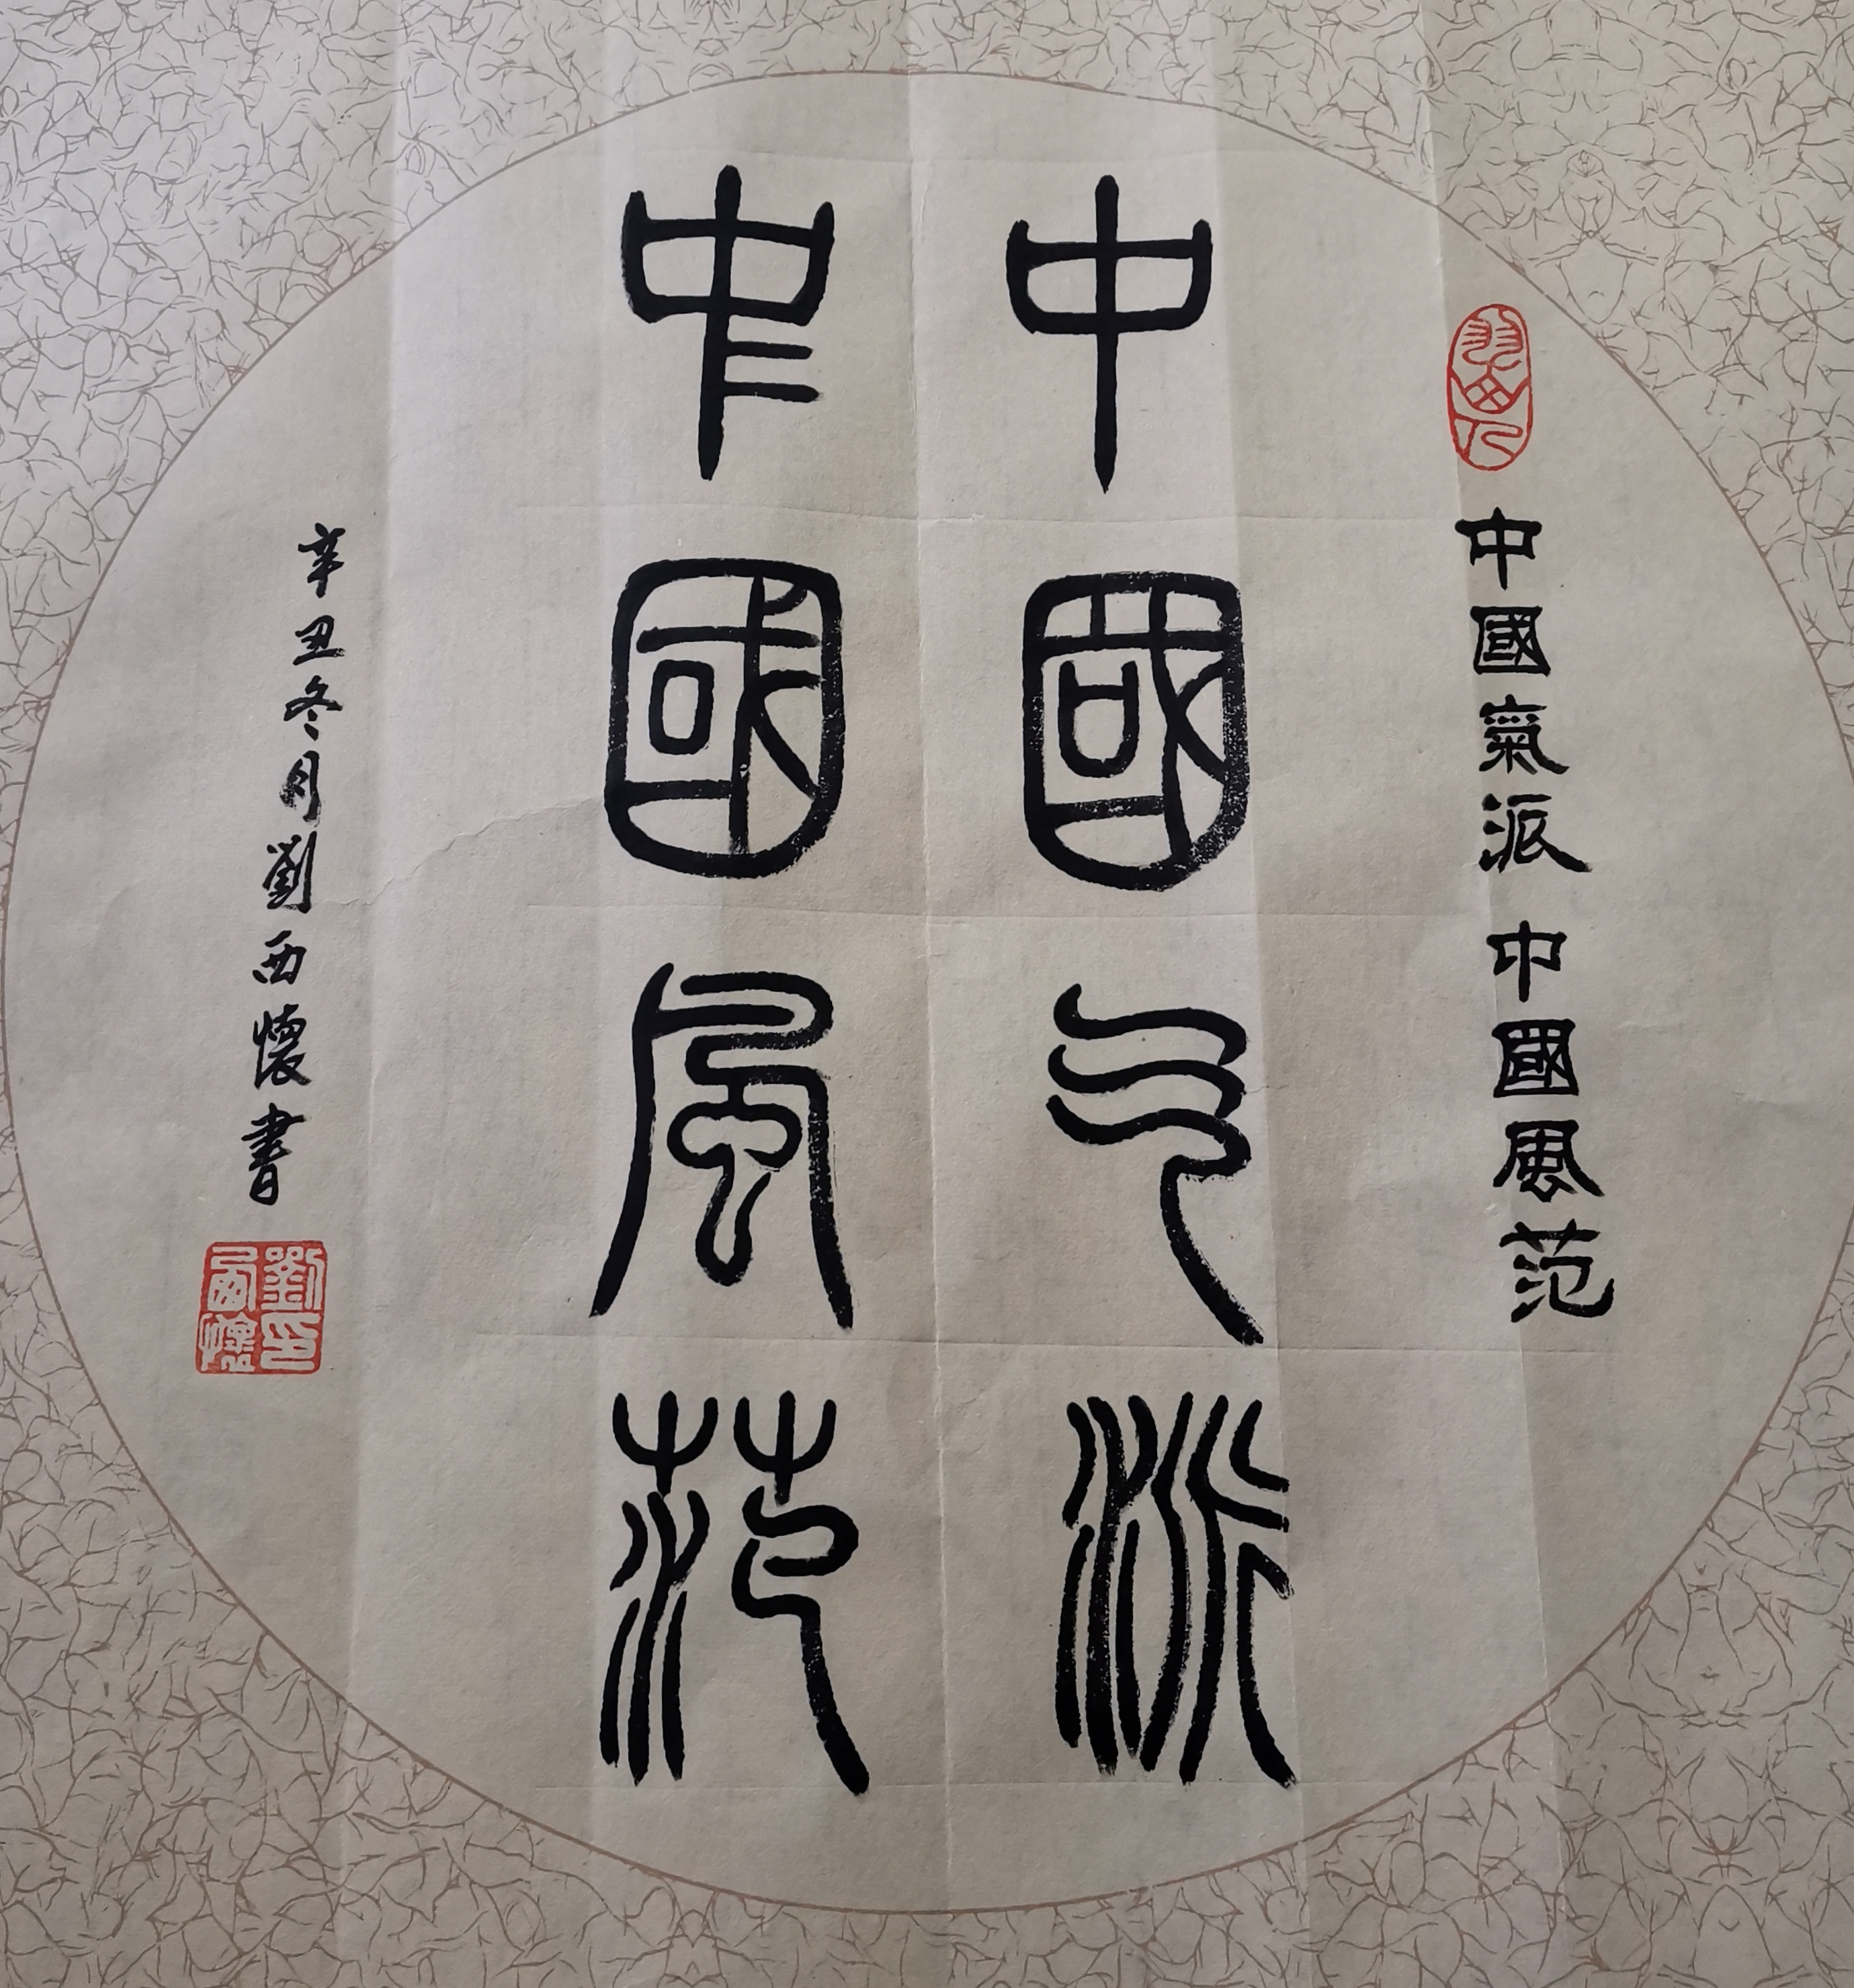 中國氣派 中國風范
中國气派
中國風范
辛丑冬月劉西懷書
劉印西懷